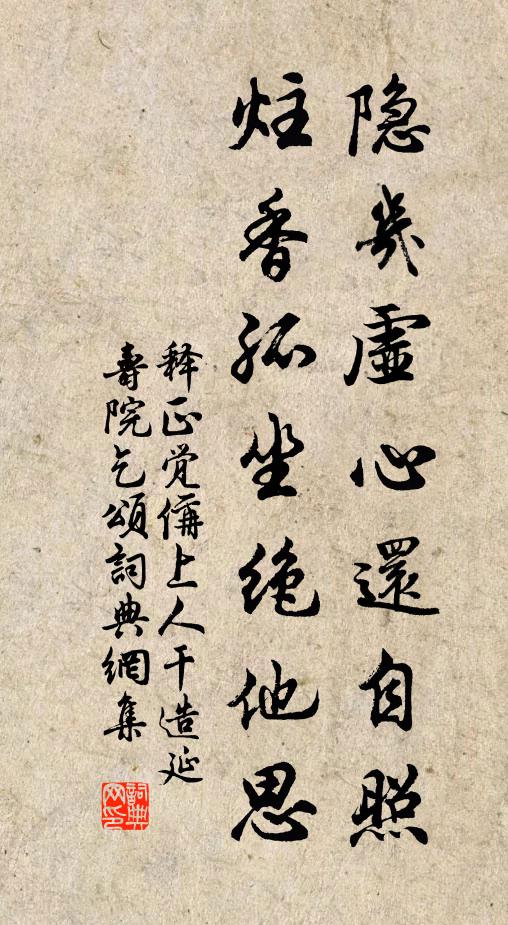 隐几虚心還自照
炷香孤坐绝他思
释正觉僃上人干造延
壽院乞頌詞典網集
詞典
网印